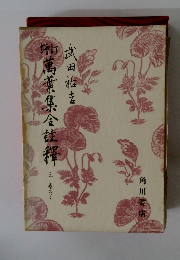 増訂 萬葉集全註釋
三 巻之三
武田祐吉
角川書店